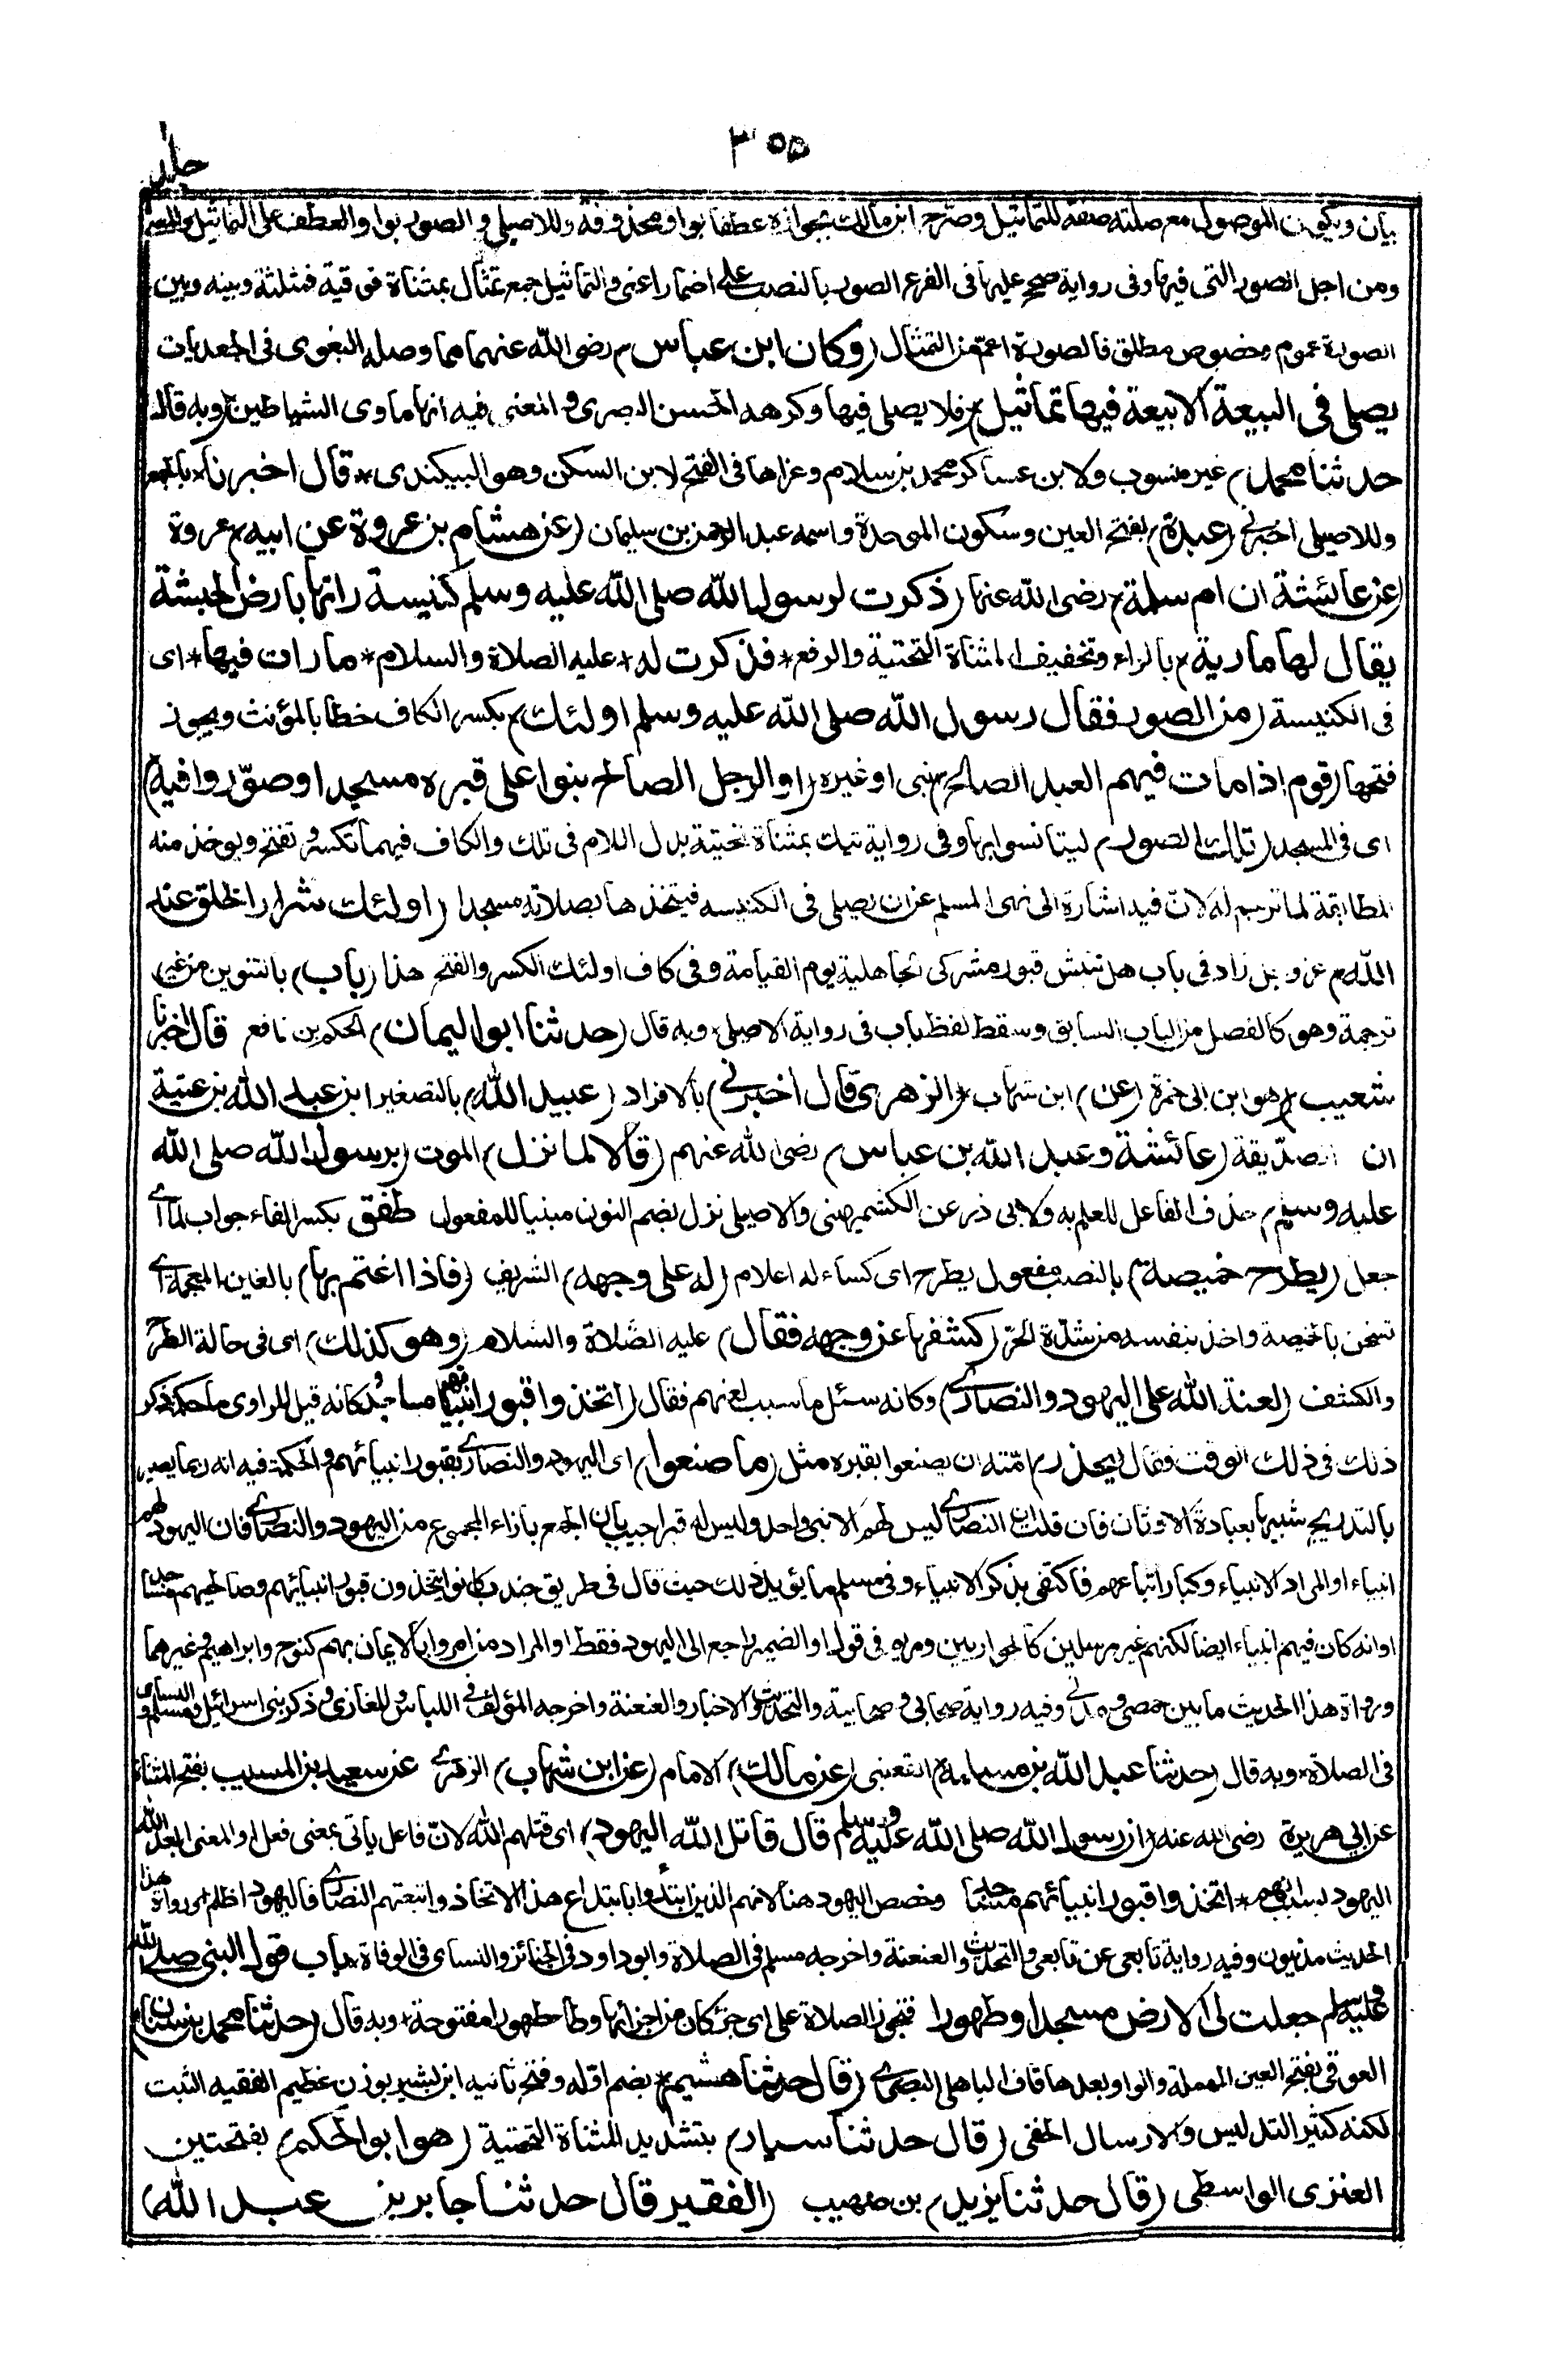 ٣٥٥
جلد
بيان ويكون الموصول مع صلته صفة للتماثيل وصرّح ابن مالك بجوازه عطفا بواو محذوفة وللاصيلى والصور بواو العطف على التماثيل والمعنى
ومن اجل الصور التى فيها وفى رواية صحح عليها فى الفرع الصور بالنصب على اضمار اعنى والتماثيل جمع تمثال بمثناة فوقية فمثلثة وبينه وبين
الصورة عموم وخصوص مطلق فالصورة اعمّ من التمثال (وكان ابن عباس) رضى الله عنهما مما وصله البغوى فى الجعديات
يصلى فى البيعة الا بيعة فيها تماثيل) فلا يصلى فيها وكرهه الحسن البصرى والمعنى فيه انها ماوى الشياطين وبه قال
حدثنا محمد) غير منسوب ولابن عساكر محمد بن سلام وعزاها فى الفتح لابن السكن وهو البيكندى * قال اخبرنا * بالجمع
وللاصيلى اخبرنى (عبدة) بفتح العين وسكون الموحدة واسمه عبد الرحمن بن سليمان (عن هشام بن عروة عن ابيه) عروة
(عن عائشة ان ام سلمة) رضى الله عنها (ذكرت لرسول الله صلى الله عليه وسلم كنيسة راتها بارض الحبشة
يقال لها مارية) بالراء وتخفيف المثناة التحتية والرفع * فذكرت له * عليه الصلاة والسلام * ما رات فيها * اى
فى الكنيسة (من الصور فقال رسول الله صلى الله عليه وسلم اولئك) بكسر الكاف خطابا لمؤنث ويجوز
فتحها (قوم اذا مات فيهم العبد الصالح) نبى او غيره (او الرجل الصالح بنوا على قبره مسجدا وصوّروا فيه)
اى فى المسجد (تلك الصور) ليتانسوا بها وفى رواية تيك بمثناة تحتية بدل اللام فى تلك والكاف فيهما تكسر وتفتح ويوخذ منه
المطابقة لما ترجم له لانّ فيه اشارة الى نهى المسلم عن ان يصلى فى الكنيسه فيتخذها بصلاته مسجدا (اولئك شرار الخلق عند
الله) عز وجل زاد فى باب هل تنبش قبور مشركى الجاهلية يوم القيامة وفى كاف اولئك الكسر والفتح هذا (باب) بالتنوين من غير
ترجمة وهو كالفصل من الباب السابق وسقط لفظ باب فى رواية الاصيلى وبه قال (حدثنا ابو اليمان) الحكم بن نافع قال اخبرنا
شعيب) هو ابن ابى حمزة (عن) ابن شهاب * (الزهرى قال اخبرنى) بالافراد (عبيد الله) بالتصغير ابن عبد الله بن عتبة
ان الصدّيقة (عائشة وعبد الله بن عباس) رضى الله عنهم (قالا لما نزل) الموت (برسول الله صلى الله
عليه وسلم) حذف الفاعل للعلم به ولابى ذر عن الكشميهنى والاصيلى نزل بضم النون مبنيا للمفعول طفق بكسر الفاء جواب لما اى
جعل (يطرح خميصة) بالنصب مفعول يطرح اى كساء له اعلام (له على وجهه) الشريف (فاذا اغتم بها) بالغين المعجمة اى
تسخن بالخميصة واخذ بنفسه من شدّة الحرّ (كشفها عن وجهه فقال) عليه الصّلاة والسّلام (وهو كذلك) اى فى حالة الطرح
والكشف (لعنة الله على اليهود والنصارى) وكانه سئل ما سبب لعنهم فقال (اتخذوا قبور انبيائهم مساجد) وكانه قيل للراوى ما حكمة ذكر
ذلك فى ذلك الوقت فقال (يحذر) امّته ان يصنعوا بقبره مثل (ما صنعوا) اى اليهود والنصارى بقبور انبيائهم والحكمة فيه انه ربما يصير
بالتدريج شبيها بعبادة الاوثان فان قلت ان النصارى ليس لهم الا نبى واحد وليس له قبر اجيب بان الجمع بازاء المجموع من اليهود والنصارى فان اليهود لهم
انبياء او المراد الانبياء وكبار اتباعهم فاكتفى بذكر الانبياء وفى مسلم ما يؤيد ذلك حيث قال فى طريق جندب كانوا يتخذون قبور انبيائهم وصالحيهم مساجد
او انه كان فيهم انبياء ايضا لكنهم غير مرسلين كالحواريين ومريم فى قول او الضمير راجع الى اليهود فقط او المراد من امروا بالايمان بهم كنوح وابراهيم وغيرهما
ورواة هذا الحديث ما بين حمصى ومدنى وفيه رواية صحابى وصحابية والتحديث والاخبار والعنعنة واخرجه المؤلف فى اللباس والمغازى وذكر بنى اسرائيل ومسلم والنساى
فى الصلاة * وبه قال (حدثنا عبد الله بن مسلمة) القعنبى (عن مالك) الامام (عن ابن شهاب) الزهرى عن سعيد بن المسيب بفتح المثناة
عن ابى هريرة رضى الله عنه (ان رسول الله صلى الله عليه وسلم قال قاتل الله اليهود) اى قتلهم الله لانّ فاعل ياتى بمعنى فعل او المعنى ابعد الله
اليهود بسبب انهم * اتخذوا قبور انبيائهم مساجد وخصص اليهود هنا لانهم الذين ابتدأوا بابتداع هذا الاتخاذ واتبعتهم النصارى فاليهود اظلم ورواة هذا
الحديث مدنيون وفيه رواية تابعى عن تابعى والتحديث والعنعنة واخرجه مسلم فى الصلاة وابو داود فى الجنائز والنساى فى الوفاة * باب قول النبى صلى الله
عليه وسلم جعلت لى الارض مسجدا وطهورا فتجوز الصلاة على اى جزء كان من اجزائها وطا طهورا مفتوحة * وبه قال (حدثنا محمد بن سنان)
العوقى بفتح العين المهملة والواو بعدها قاف الباهلى البصرى (قال حدثنا هشيم) بضم اوّله وفتح ثانيه ابن بشير بوزن عظيم الفقيه الثبت
لكنه كثير التدليس والارسال الخفى (قال حدثنا سيار) بتشديد المثناة التحتية (هو ابو الحكم) بفتحتين
العنزى الواسطى (قال حدثنا يزيد) بن صهيب (الفقير قال حدثنا جابر بن عبد الله)